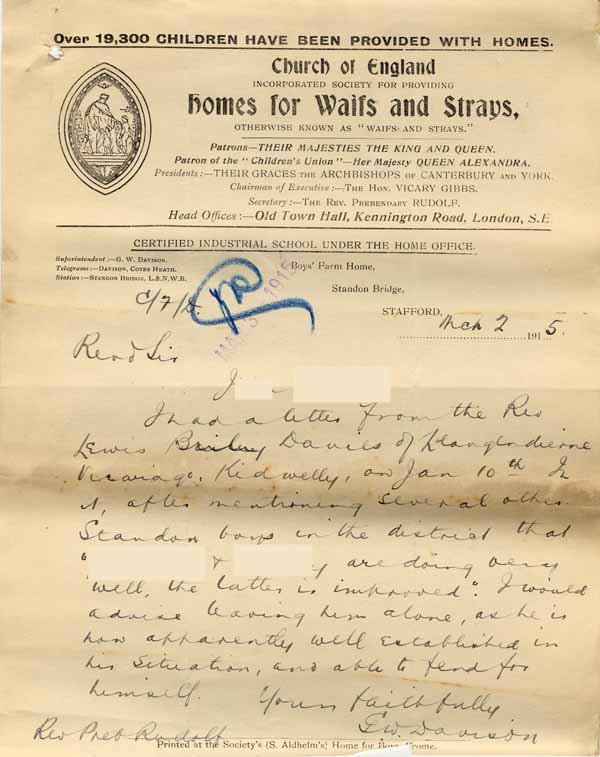 Over 19,300 CHILDREN HAVE BEEN PROVIDED WITH HOMES.
Church of England
INCORPORATED SOCIETY FOR PROVIDING
Homes for Waifs and Strays,
OTHERWISE KNOWN AS "WAIFS AND STRAYS."
Patrons—THEIR MAJESTIES THE KING AND QUEEN.
Patron of the "Children's Union"—Her Majesty QUEEN ALEXANDRA.
Presidents:—THEIR GRACES THE ARCHBISHOPS OF CANTERBURY AND YORK.
Chairman of Executive:—THE HON. VICARY GIBBS.
Secretary:—THE REV. PREBENDARY RUDOLF.
Head Offices:—Old Town Hall, Kennington Road, London, S.E.
CERTIFIED INDUSTRIAL SCHOOL UNDER THE HOME OFFICE.
Superintendent:—G. W. DAVISON.
Telegrams:—DAVISON, COTES HEATH.
Station:—STANDON BRIDGE, L.&N.W.R.
Boys' Farm Home,
Standon Bridge,
STAFFORD,
Mch 2 1915.
MAR 3 1915
Revd Sir
J
I had a letter from the Rev
Lewis Davies of
Vicarage, Kidwelly, on Jan 10th In
it, after mentioning several other
Standon boys in the district that
" & y are doing very
well, the latter is improved". I would
advise leaving him alone, as he is
now apparently well established in
his situation, and able to fend for
himself.
Yours faithfully
G W Davison
Rev Preb Rudolf
Printed at the Society's (S. Aldhelm's) Home for Boys, Frome.